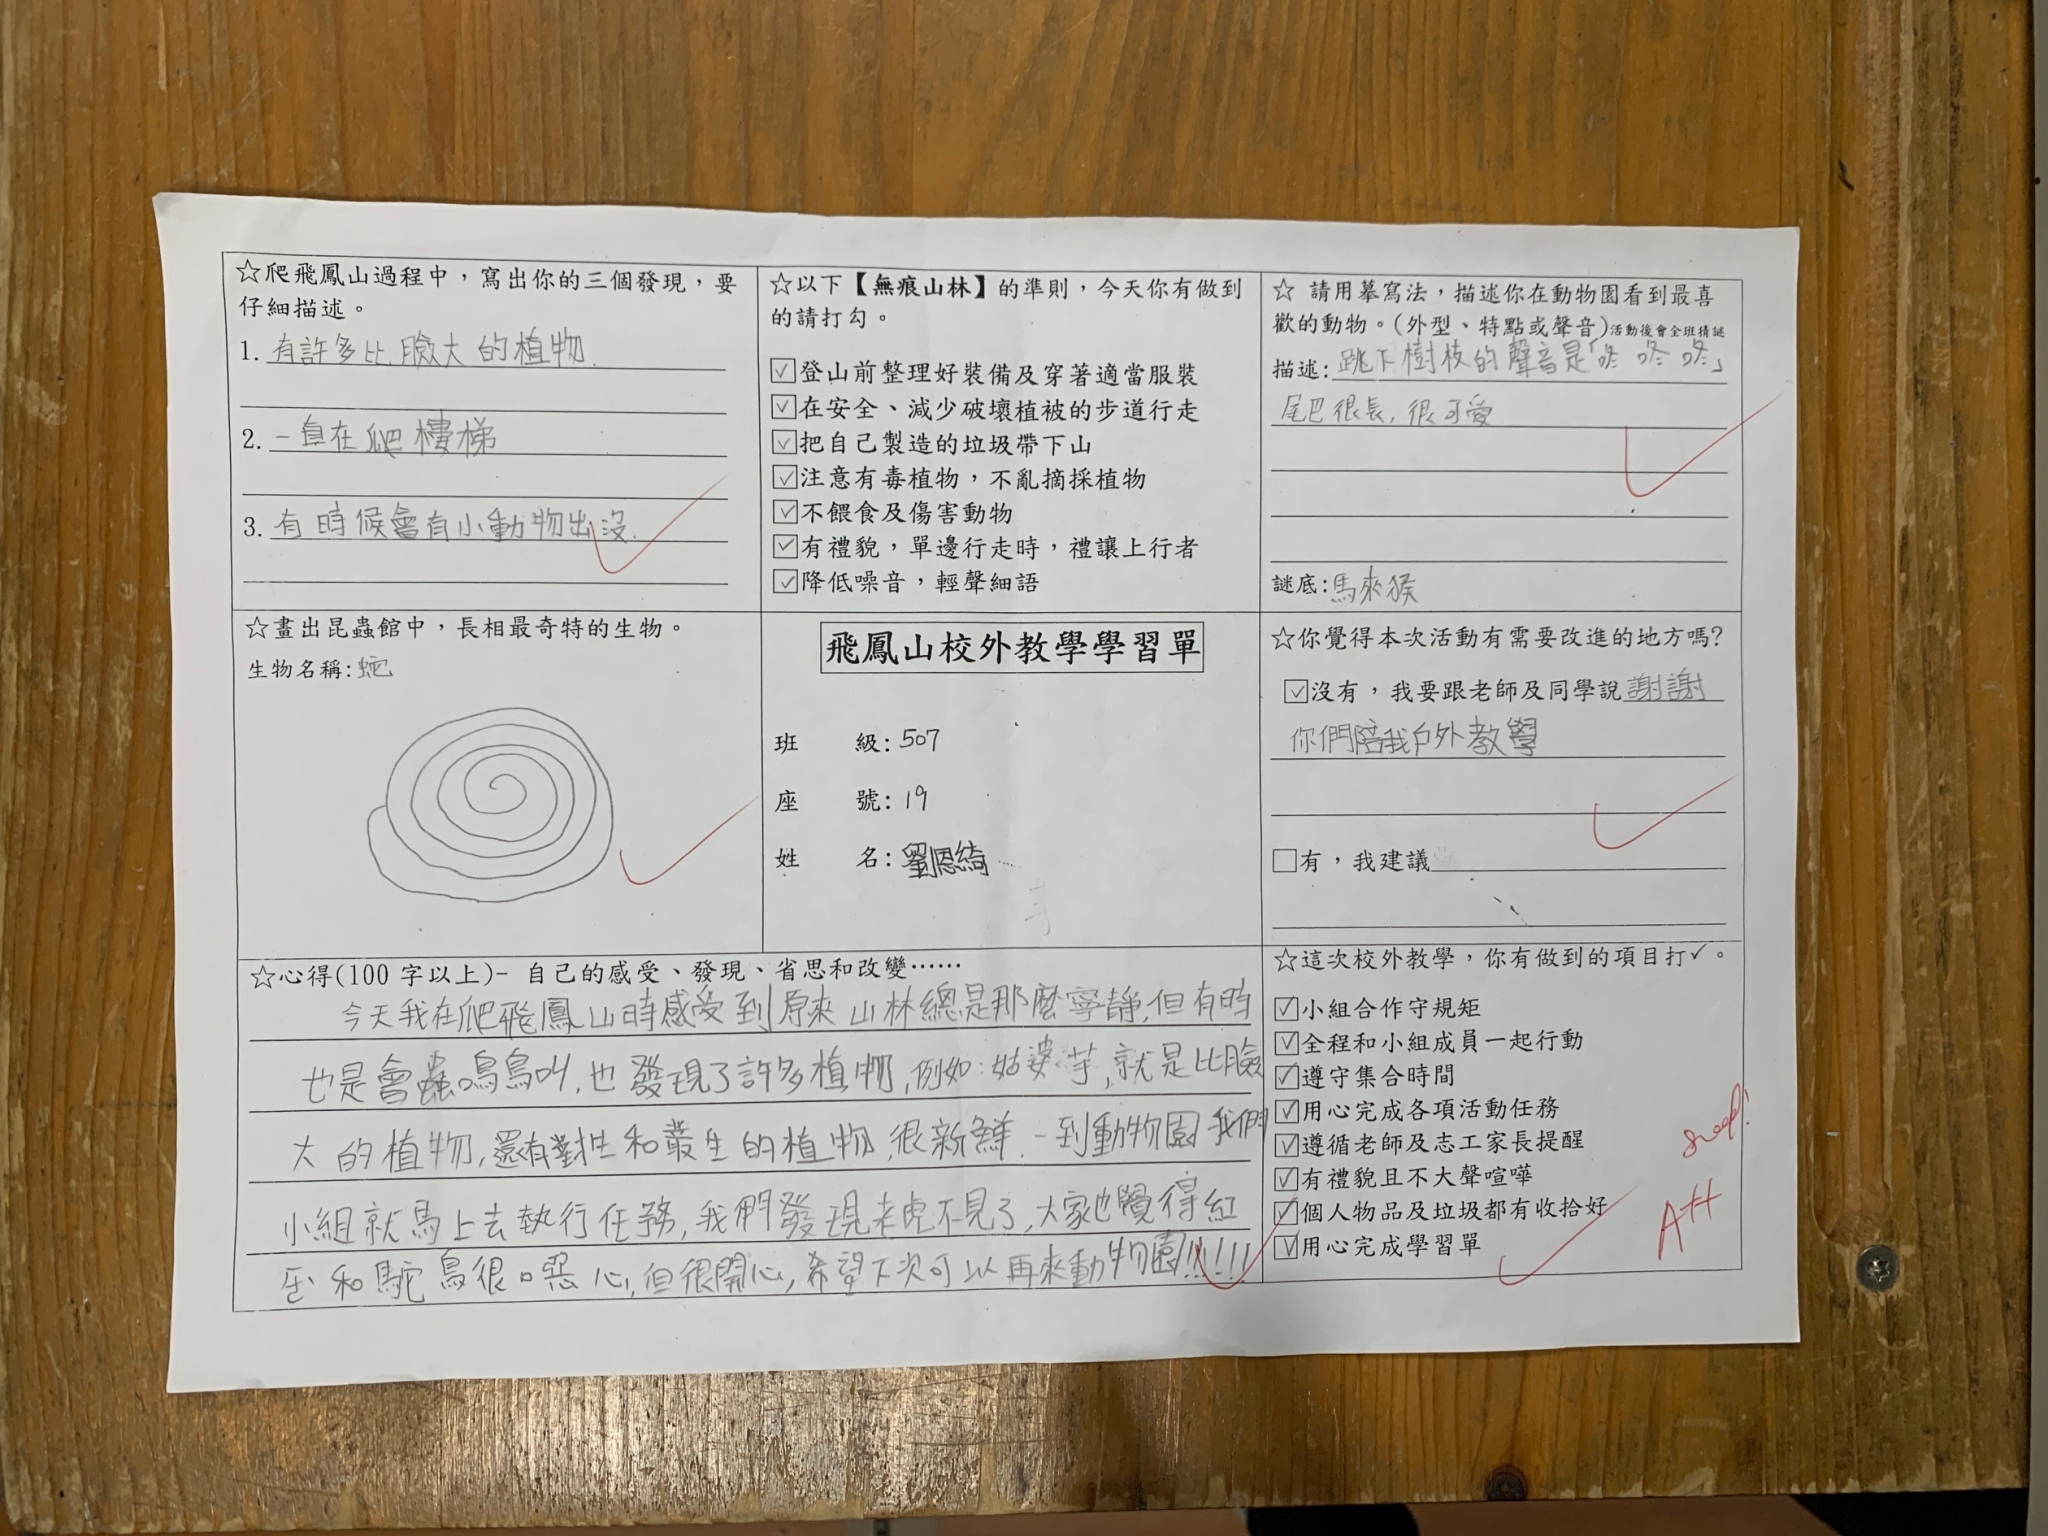 ☆爬飛鳳山過程中，寫出你的三個發現，要
仔細描述。
1. 有許多比臉大的植物.
2. 一直在爬樓梯
3. 有時候會有小動物出沒.
☆以下【無痕山林】的準則，今天你有做到
的請打勾。
☑登山前整理好裝備及穿著適當服裝
☑在安全、減少破壞植被的步道行走
☑把自己製造的垃圾帶下山
☑注意有毒植物，不亂摘採植物
☑不餵食及傷害動物
☑有禮貌，單邊行走時，禮讓上行者
☑降低噪音，輕聲細語
☆ 請用摹寫法，描述你在動物園看到最喜
歡的動物。(外型、特點或聲音)活動後會全班猜謎
描述: 跳下樹枝的聲音是「咚 咚 咚」
尾巴很長, 很可愛
謎底: 馬來猴
☆畫出昆蟲館中，長相最奇特的生物。
生物名稱: 蛇
飛鳳山校外教學學習單
班 級: 507
座 號: 19
姓 名: 劉恩綺
☆你覺得本次活動有需要改進的地方嗎?
☑沒有，我要跟老師及同學說謝謝
你們陪我戶外教學
☐有，我建議
☆心得(100 字以上)- 自己的感受、發現、省思和改變……
今天我在爬飛鳳山時感受到原來山林總是那麼寧靜, 但有時
也是會蟲鳴鳥叫, 也發現了許多植物, 例如: 姑婆芋, 就是比臉
大的植物, 還有對生和叢生的植物, 很新鮮. 一到動物園我們
小組就馬上去執行任務, 我們發現老虎不見了, 大家也覺得紅
和駝鳥很噁心, 但很開心, 希望下次可以再來動物園!!!!!!
☆這次校外教學，你有做到的項目打✓。
☑小組合作守規矩
☑全程和小組成員一起行動
☑遵守集合時間
☑用心完成各項活動任務
☑遵循老師及志工家長提醒
☑有禮貌且不大聲喧嘩
☑個人物品及垃圾都有收拾好
☑用心完成學習單
A++